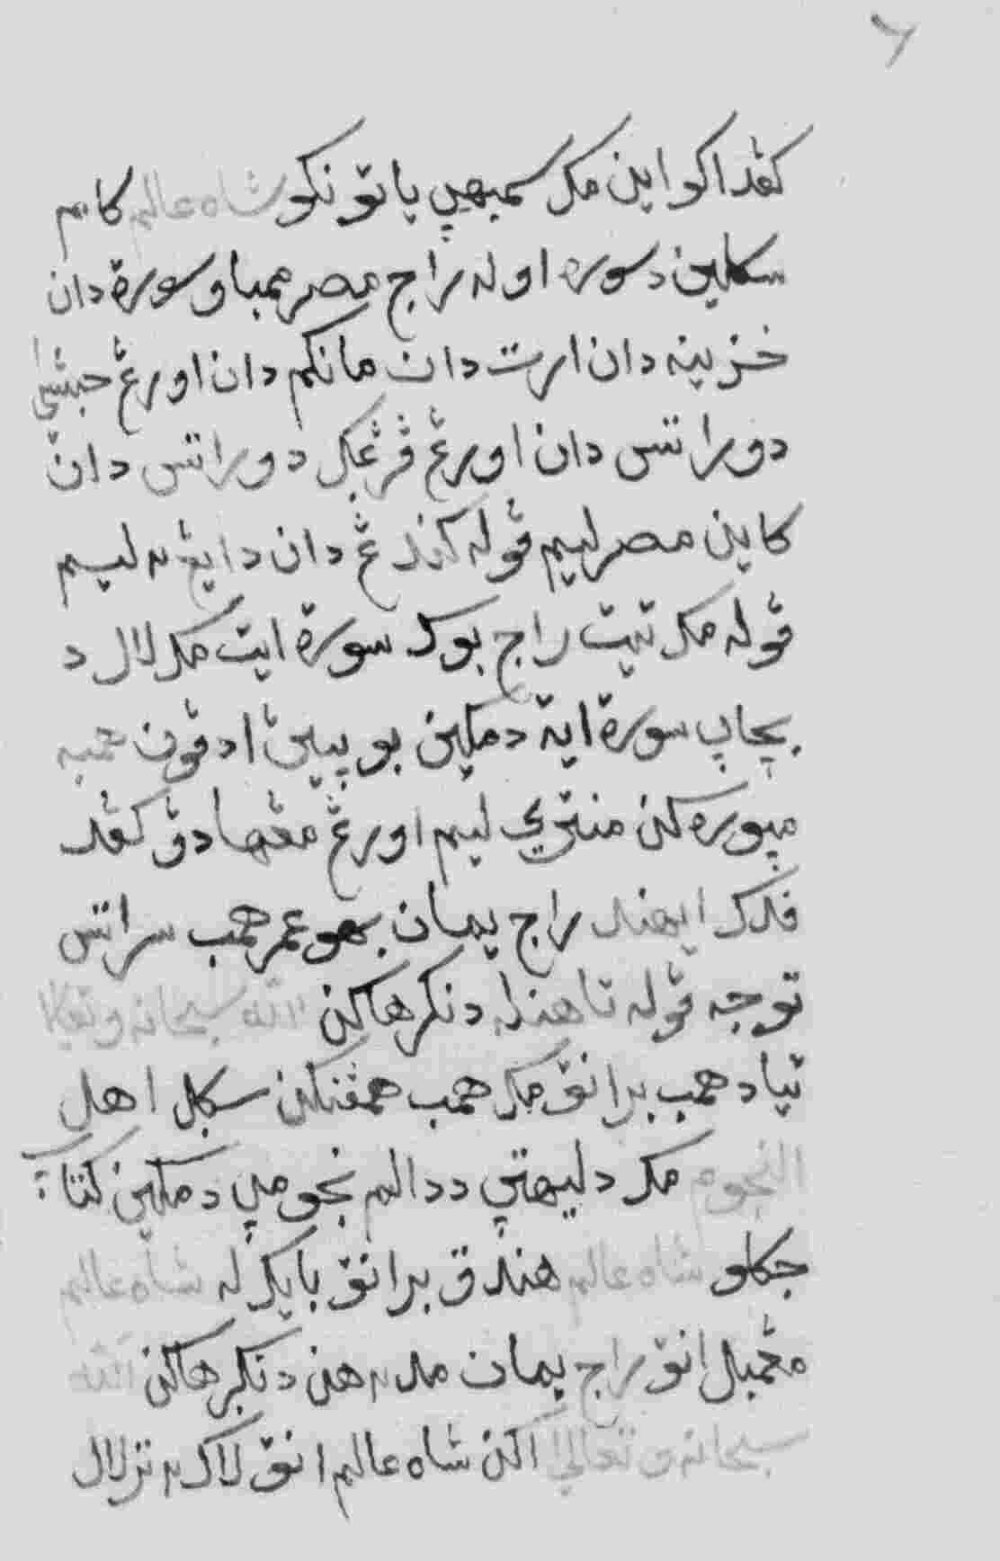 ٦
كڤداكو اين مك سمبهڽ ياتوانكو شاه عالم كاءيم
سكلين دسوره اوله راج مصر ممباو سورة دان
خزينه دان ارت دان مانكم دان اورڠ حبشي
دوراتس دان اورڠ ڤرڠݢي دوراتس دان
كاين مصر ليم ڤوله كندڠ دان دايڠ٢ ليم
ڤوله مك تيته راج بوك سورة ايت مك لالو د
بچاڽ سورة ايت دمكين بوڽيڽ ادڤون همبه
مڽورهكن منتري ليم اورڠ مڠهادڤ كڤد
ادندا راج يمان بهو عمر همب سراتس
توجه ڤوله تاهن له دنكرهاكن الله سبحانه وتعالى
تياد همب برانق مك همب همڤنكن سكل اهل
النجوم مك دليهتڽ ددالم نجومڽ دمكين كتاڽ
جكلو شاه عالم هندق برانق بايكله شاه عالم
مڠمبل انق راج يمان مدهن٢ دنكرهاكن الله
سبحانه وتعالى اكن شاه عالم انق لاك٢ تر لالو